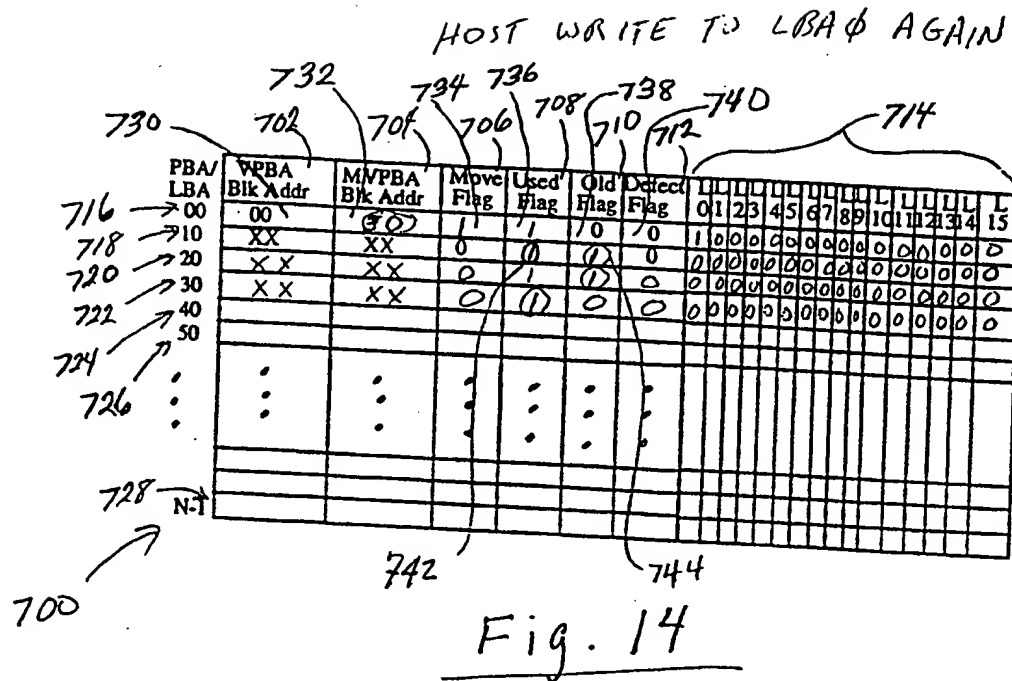 HOST WRITE TO LBAϕ AGAIN
732 734 736 738 740 714
730 702 704 706 708 710 712
PBA/ LBA VPBA Blk Addr MVPBA Blk Addr Move Flag Used Flag Old Flag Defect Flag L0 L1 L2 L3 L4 L5 L6 L7 L8 L9 L10 L11 L12 L13 L14 L15
716 00 00 30 1 1 0 0 1 0 0 0 0 0 0 0 0 0 0 0 0 0 0 0
718 10 XX XX 0 0 1 0 0 0 0 0 0 0 0 0 0 0 0 0 0 0 0 0
720 20 XX XX 0 1 1 0 0 0 0 0 0 0 0 0 0 0 0 0 0 0 0 0
722 30 XX XX 0 1 0 0 0 0 0 0 0 0 0 0 0 0 0 0 0 0 0 0
724 40
726 50
728 N-1
700 742 744
Fig. 14